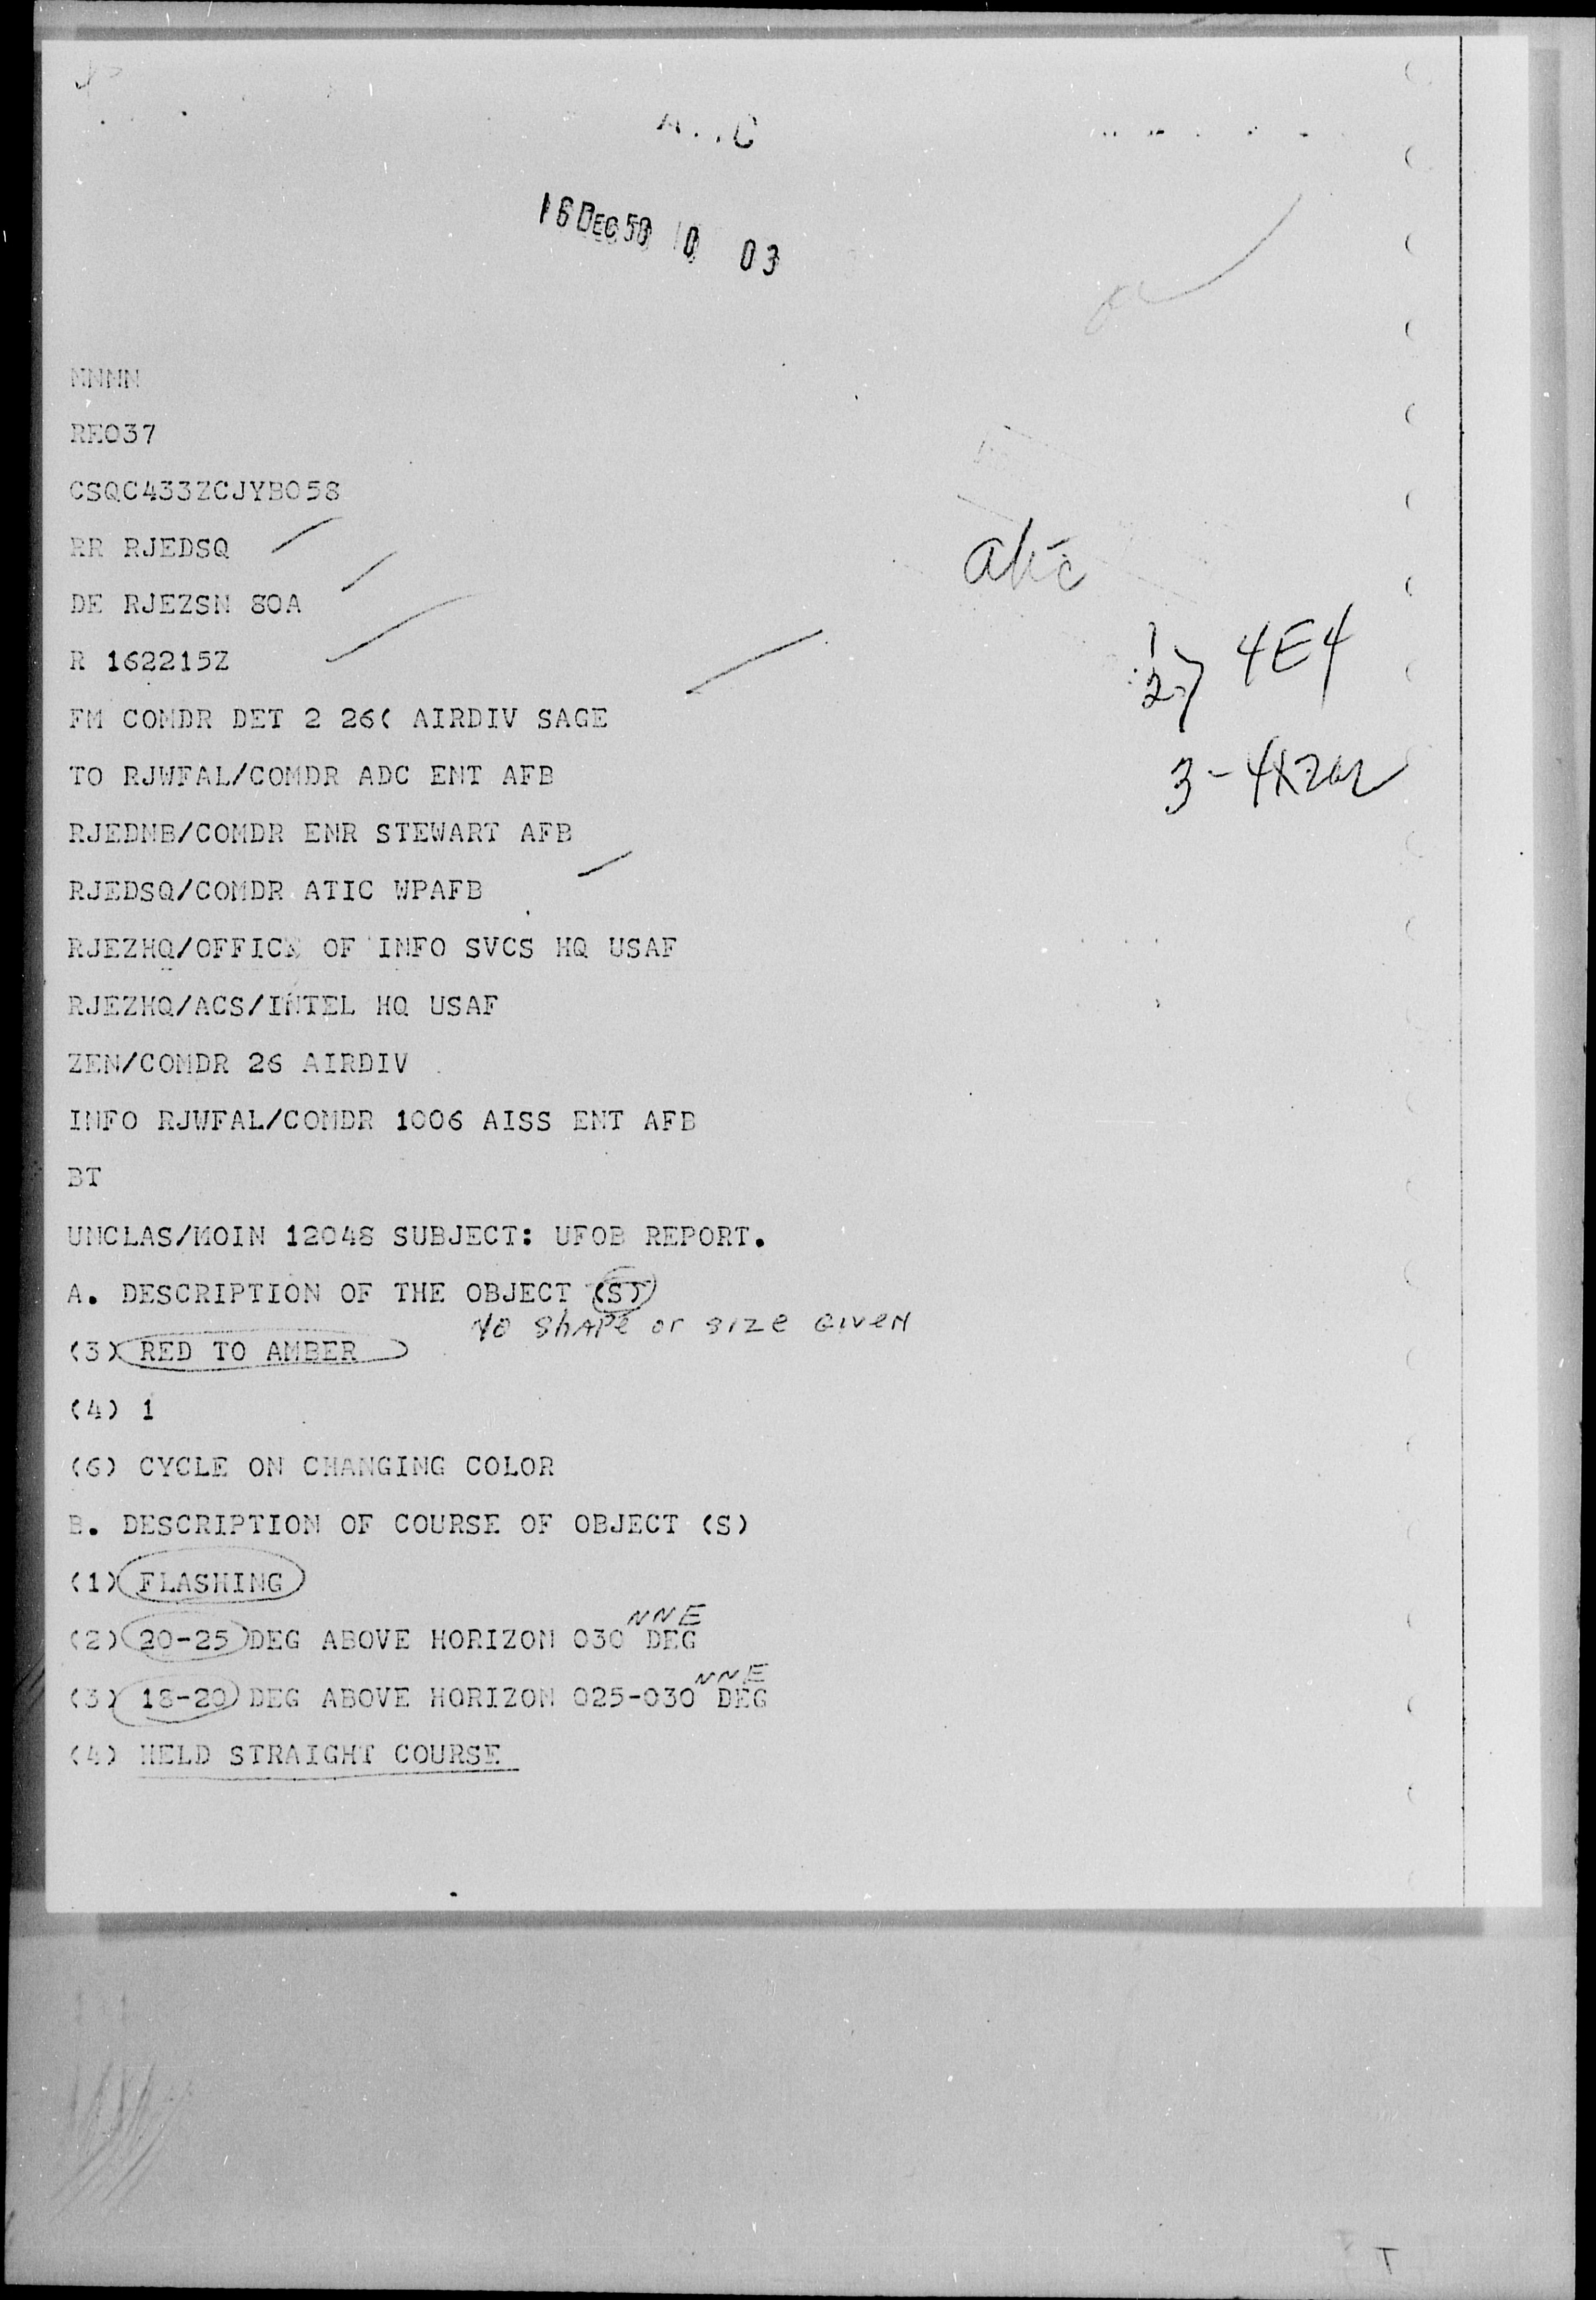 16 DEC 58 10 03
NNNN
RE037
CSQC433ZCJYB058
RR RJEDSQ
DE RJEZSN 80A
R 162215Z
FM COMDR DET 2 26( AIRDIV SAGE
TO RJWFAL/COMDR ADC ENT AFB
RJEDNB/COMDR ENR STEWART AFB
RJEDSQ/COMDR ATIC WPAFB
RJEZHQ/OFFICE OF INFO SVCS HQ USAF
RJEZHQ/ACS/INTEL HQ USAF
ZEN/COMDR 26 AIRDIV
INFO RJWFAL/COMDR 1006 AISS ENT AFB
BT
UNCLAS/MOIN 12048 SUBJECT: UFOB REPORT.
A. DESCRIPTION OF THE OBJECT (S)
No shape or size given
(3) RED TO AMBER
(4) 1
(6) CYCLE ON CHANGING COLOR
B. DESCRIPTION OF COURSE OF OBJECT (S)
(1) FLASHING
NNE
(2) 20-25 DEG ABOVE HORIZON 030 DEG
NNE
(3) 18-20 DEG ABOVE HORIZON 025-030 DEG
(4) HELD STRAIGHT COURSE
atic
1
2 } 4E4
T